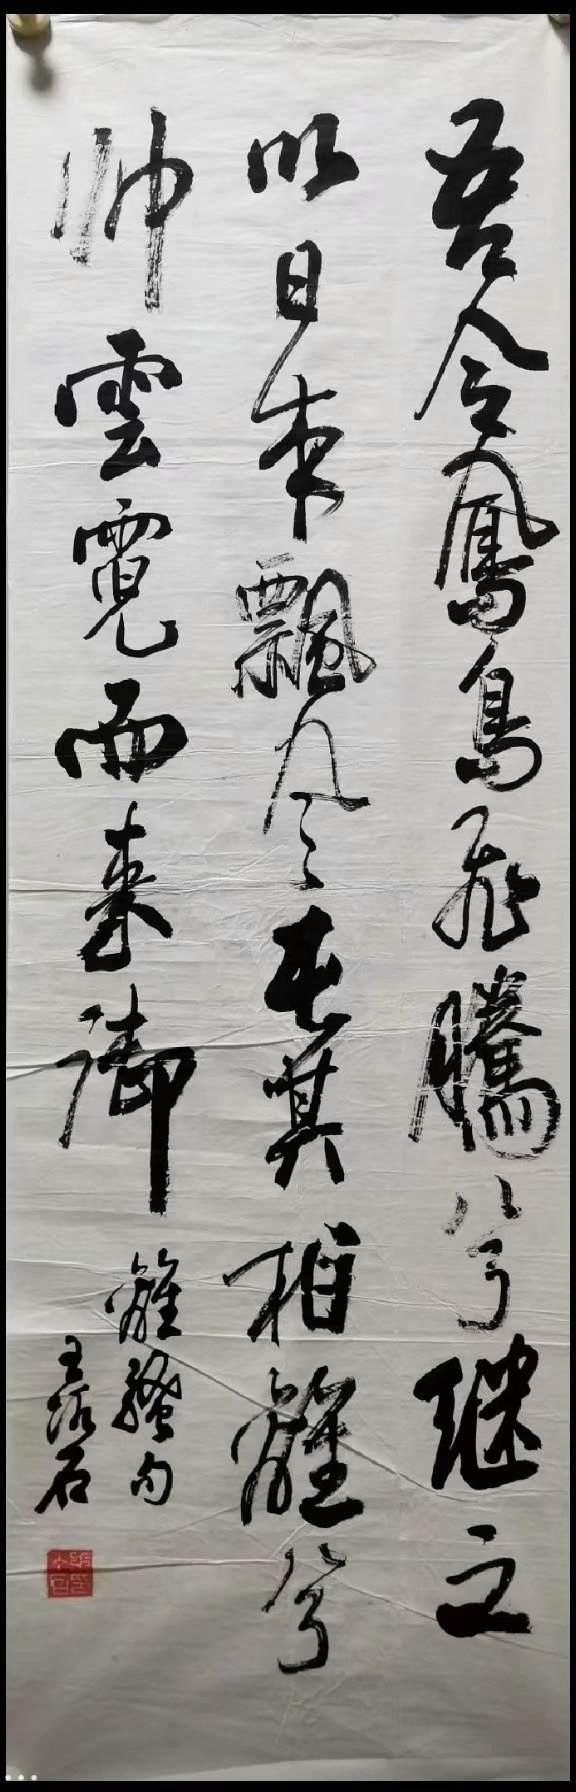 吾令鳳鳥飛騰兮继之
以日夜飄風屯其相離兮
帥雲霓而來御
離騷句
王石